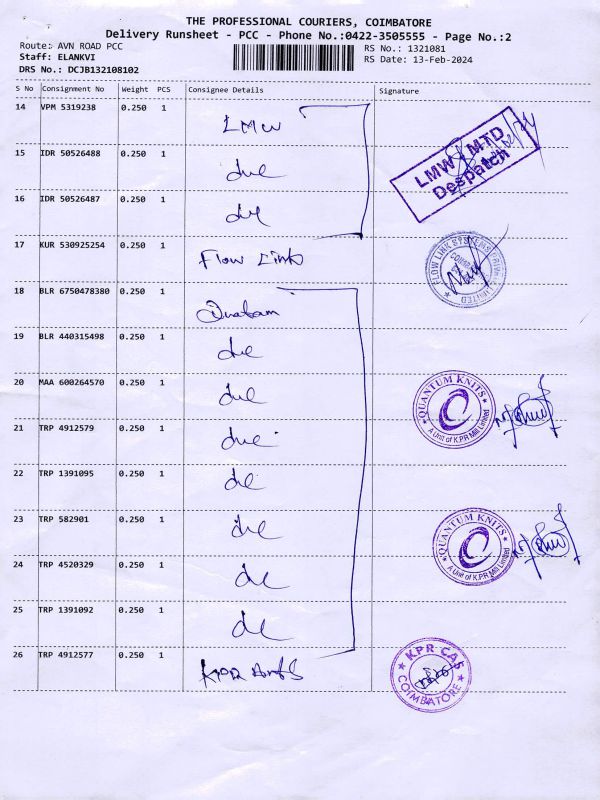 THE PROFESSIONAL COURIERS, COIMBATORE
Delivery Runsheet - PCC - Phone No.:0422-3505555 - Page No.:2
Route: AVN ROAD PCC RS No.: 1321081
Staff: ELANKVI RS Date: 13-Feb-2024
DRS No.: DCJB132108102
S No Consignment No Weight PCS Consignee Details Signature
14 VPM 5319238 0.250 1 LMW
LMW MTD
Despatch
15 IDR 50526488 0.250 1
16 IDR 50526487 0.250 1
17 KUR 530925254 0.250 1 Flow Link
FLOW LINK SYSTEMS PRIVATE LIMITED
18 BLR 6750478380 0.250 1
19 BLR 440315498 0.250 1
20 MAA 600264570 0.250 1
QUANTUM KNITS
A Unit of K.P.R Mill Limited
21 TRP 4912579 0.250 1
22 TRP 1391095 0.250 1
23 TRP 582901 0.250 1
QUANTUM KNITS
A Unit of K.P.R Mill Limited
24 TRP 4520329 0.250 1
25 TRP 1391092 0.250 1
26 TRP 4912577 0.250 1 KPR
KPR CAS
COIMBATORE